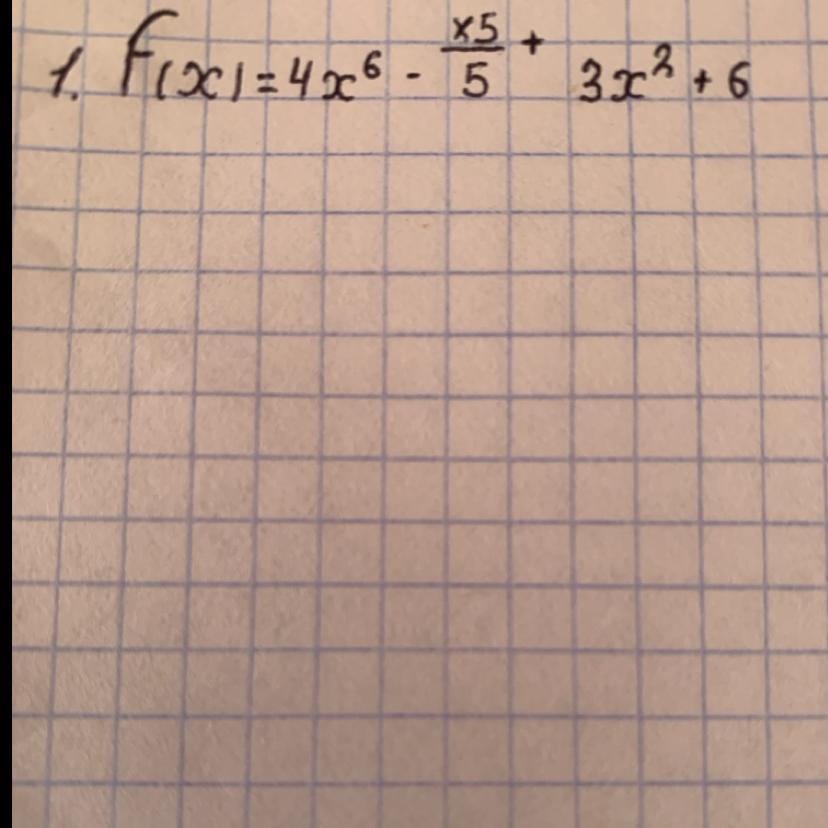 1. f(x) = 4x⁶ - x5/5 + 3x² + 6